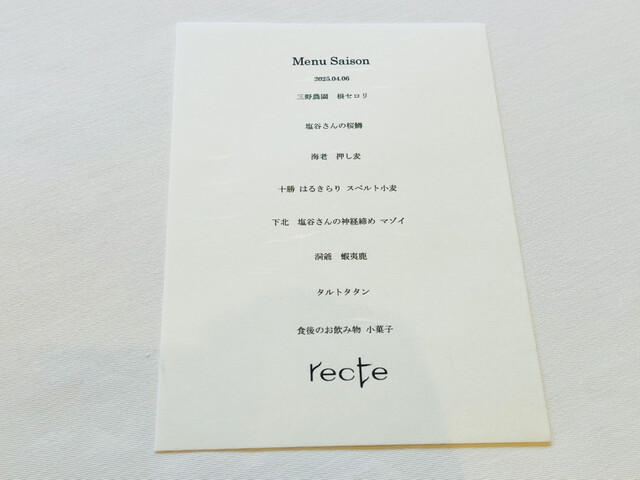 Menu Saison
2025.04.06
三野農園　根セロリ
塩谷さんの桜鱒
海老　押し麦
十勝 はるきらり スペルト小麦
下北　塩谷さんの神経締め マゾイ
洞爺　蝦夷鹿
タルトタタン
食後のお飲み物 小菓子
recte